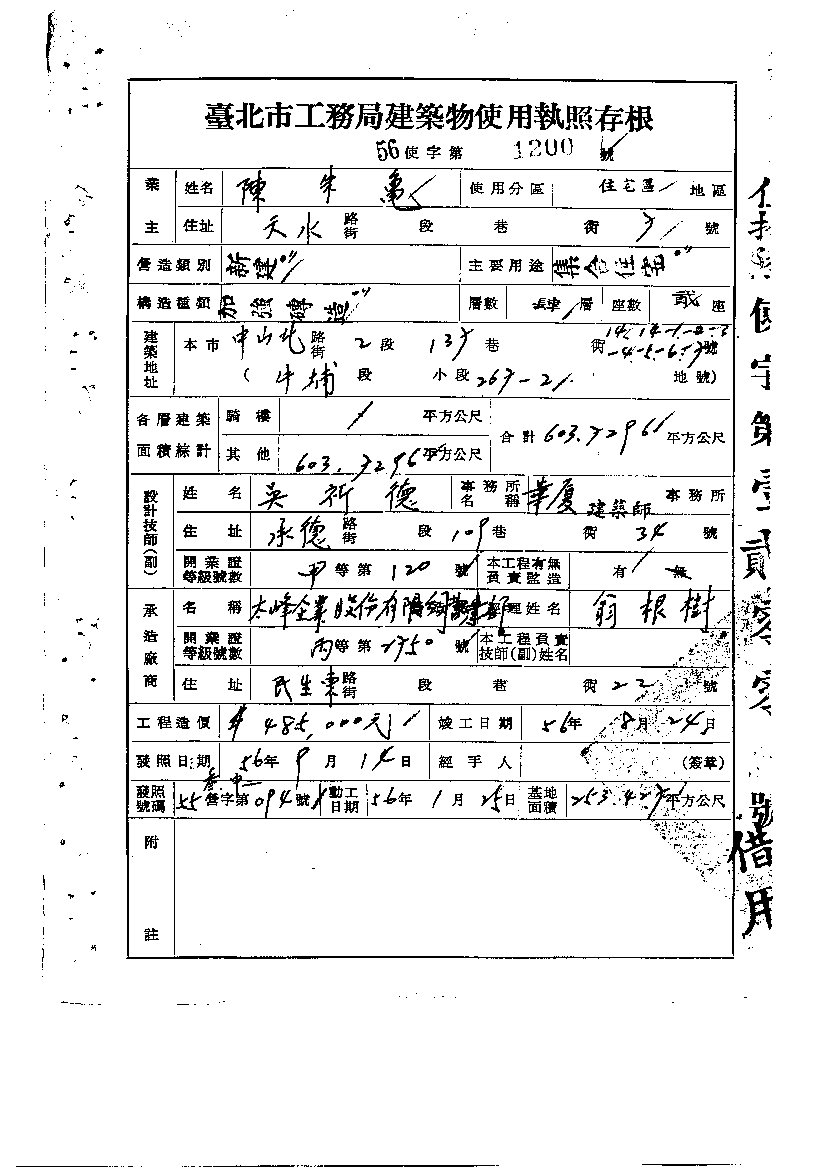 臺北市工務局建築物使用執照存根
56使字第 1200 號
業主 姓名 陳朱龜 使用分區 住宅區 地區
住址 天水 路街 段 巷 街 號
營造類別 新建 主要用途 集合住宅
構造種類 加強磚造 層數 層 座數 貳 座
建築地址 本市 中山北 路街 2 段 巷 街 號
( 牛埔 段 小段 地號)
各層建築面積綜計 騎樓 平方公尺 合計 平方公尺
其他 平方公尺
設計技師(副) 姓名 吳祈德 事務所名稱 華廈建築師 事務所
住址 承德 路街 段 109 巷 街 34 號
開業證等級號數 甲 等第 120 號 本工程有無負責監造 有 無
承造廠商 名稱 太峰企業股份有限 經理姓名 翁根樹
開業證等級號數 丙 等第 號 本工程負責技師(副)姓名
住址 民生東 路街 段 巷 街 22 號
工程造價 $485,000元 竣工日期 56年 8月 24日
發照日期 56年 9月 14日 經手人 (簽章)
發照號碼 55 營字第 094 號 動工日期 56年 1月 25日 基地面積 平方公尺
附註
使字第壹貳零零號借用